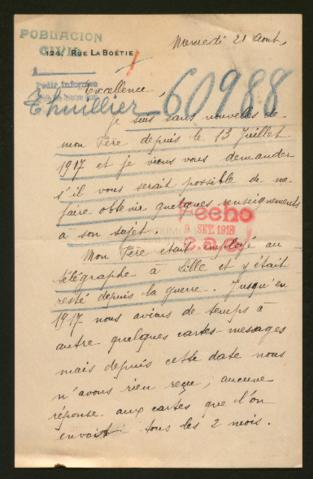 POBLACION
CIVIL
124, RUE LA BOËTIE
Mercredi 21 Août
Pedir Informes
Excellence,
Thuillier 60988
Je suis sans nouvelles de
mon Père depuis le 13 Juillet
1917 et je viens vous demander
s'il vous serait possible de me
faire obtenir quelques renseignements
à son sujet.
echo
SET. 1918
Mon Père était employé au
télégraphe à Lille et y était
resté depuis la guerre. Jusqu'en
1917 nous avions de temps à
autre quelques cartes-messages
mais depuis cette date nous
n'avons rien reçu, aucune
réponse aux cartes que l'on
envoit tous les 2 mois.